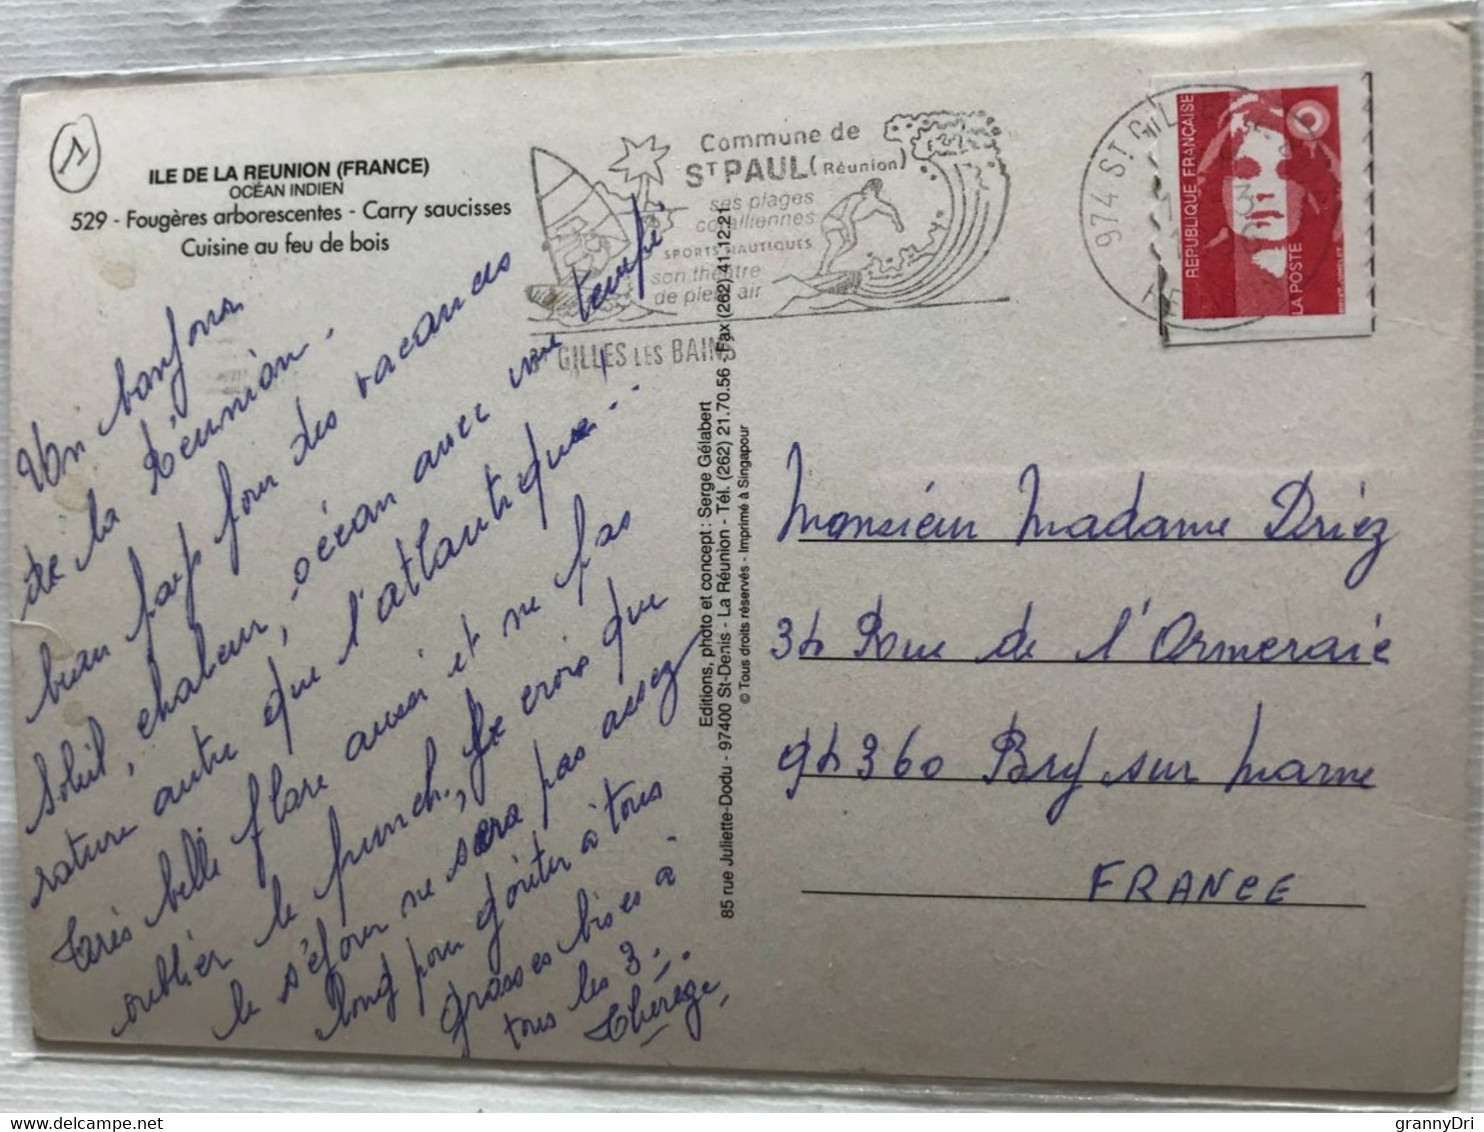 1
ILE DE LA REUNION (FRANCE)
OCÉAN INDIEN
529 - Fougères arborescentes - Carry saucisses
Cuisine au feu de bois
Un bonjour
de la Réunion.
beau pays pour des vacances
soleil, chaleur, océan avec une tempé
rature autre que l'atlantique...
très belle flore aussi et ne pas
oublier le punch, je crois que
le séjour ne sera pas assez
long pour goûter à tous
grosses bises à
tous les 3.
Thérèse
Commune de
ST PAUL (Réunion)
ses plages
coralliennes
SPORTS NAUTIQUES
son théâtre
de plein air
ST GILLES LES BAINS
974 ST GILLES
REPUBLIQUE FRANÇAISE
LA POSTE
Editions, photo et concept : Serge Gélabert
85 rue Juliette-Dodu - 97400 St-Denis - La Réunion - Tél. (262) 21.70.56 - Fax (262) 41.12.21
© Tous droits réservés - Imprimé à Singapour
Monsieur Madame Driez
34 Rue de l'Ormeraie
94360 Bry sur Marne
FRANCE
grannyDri